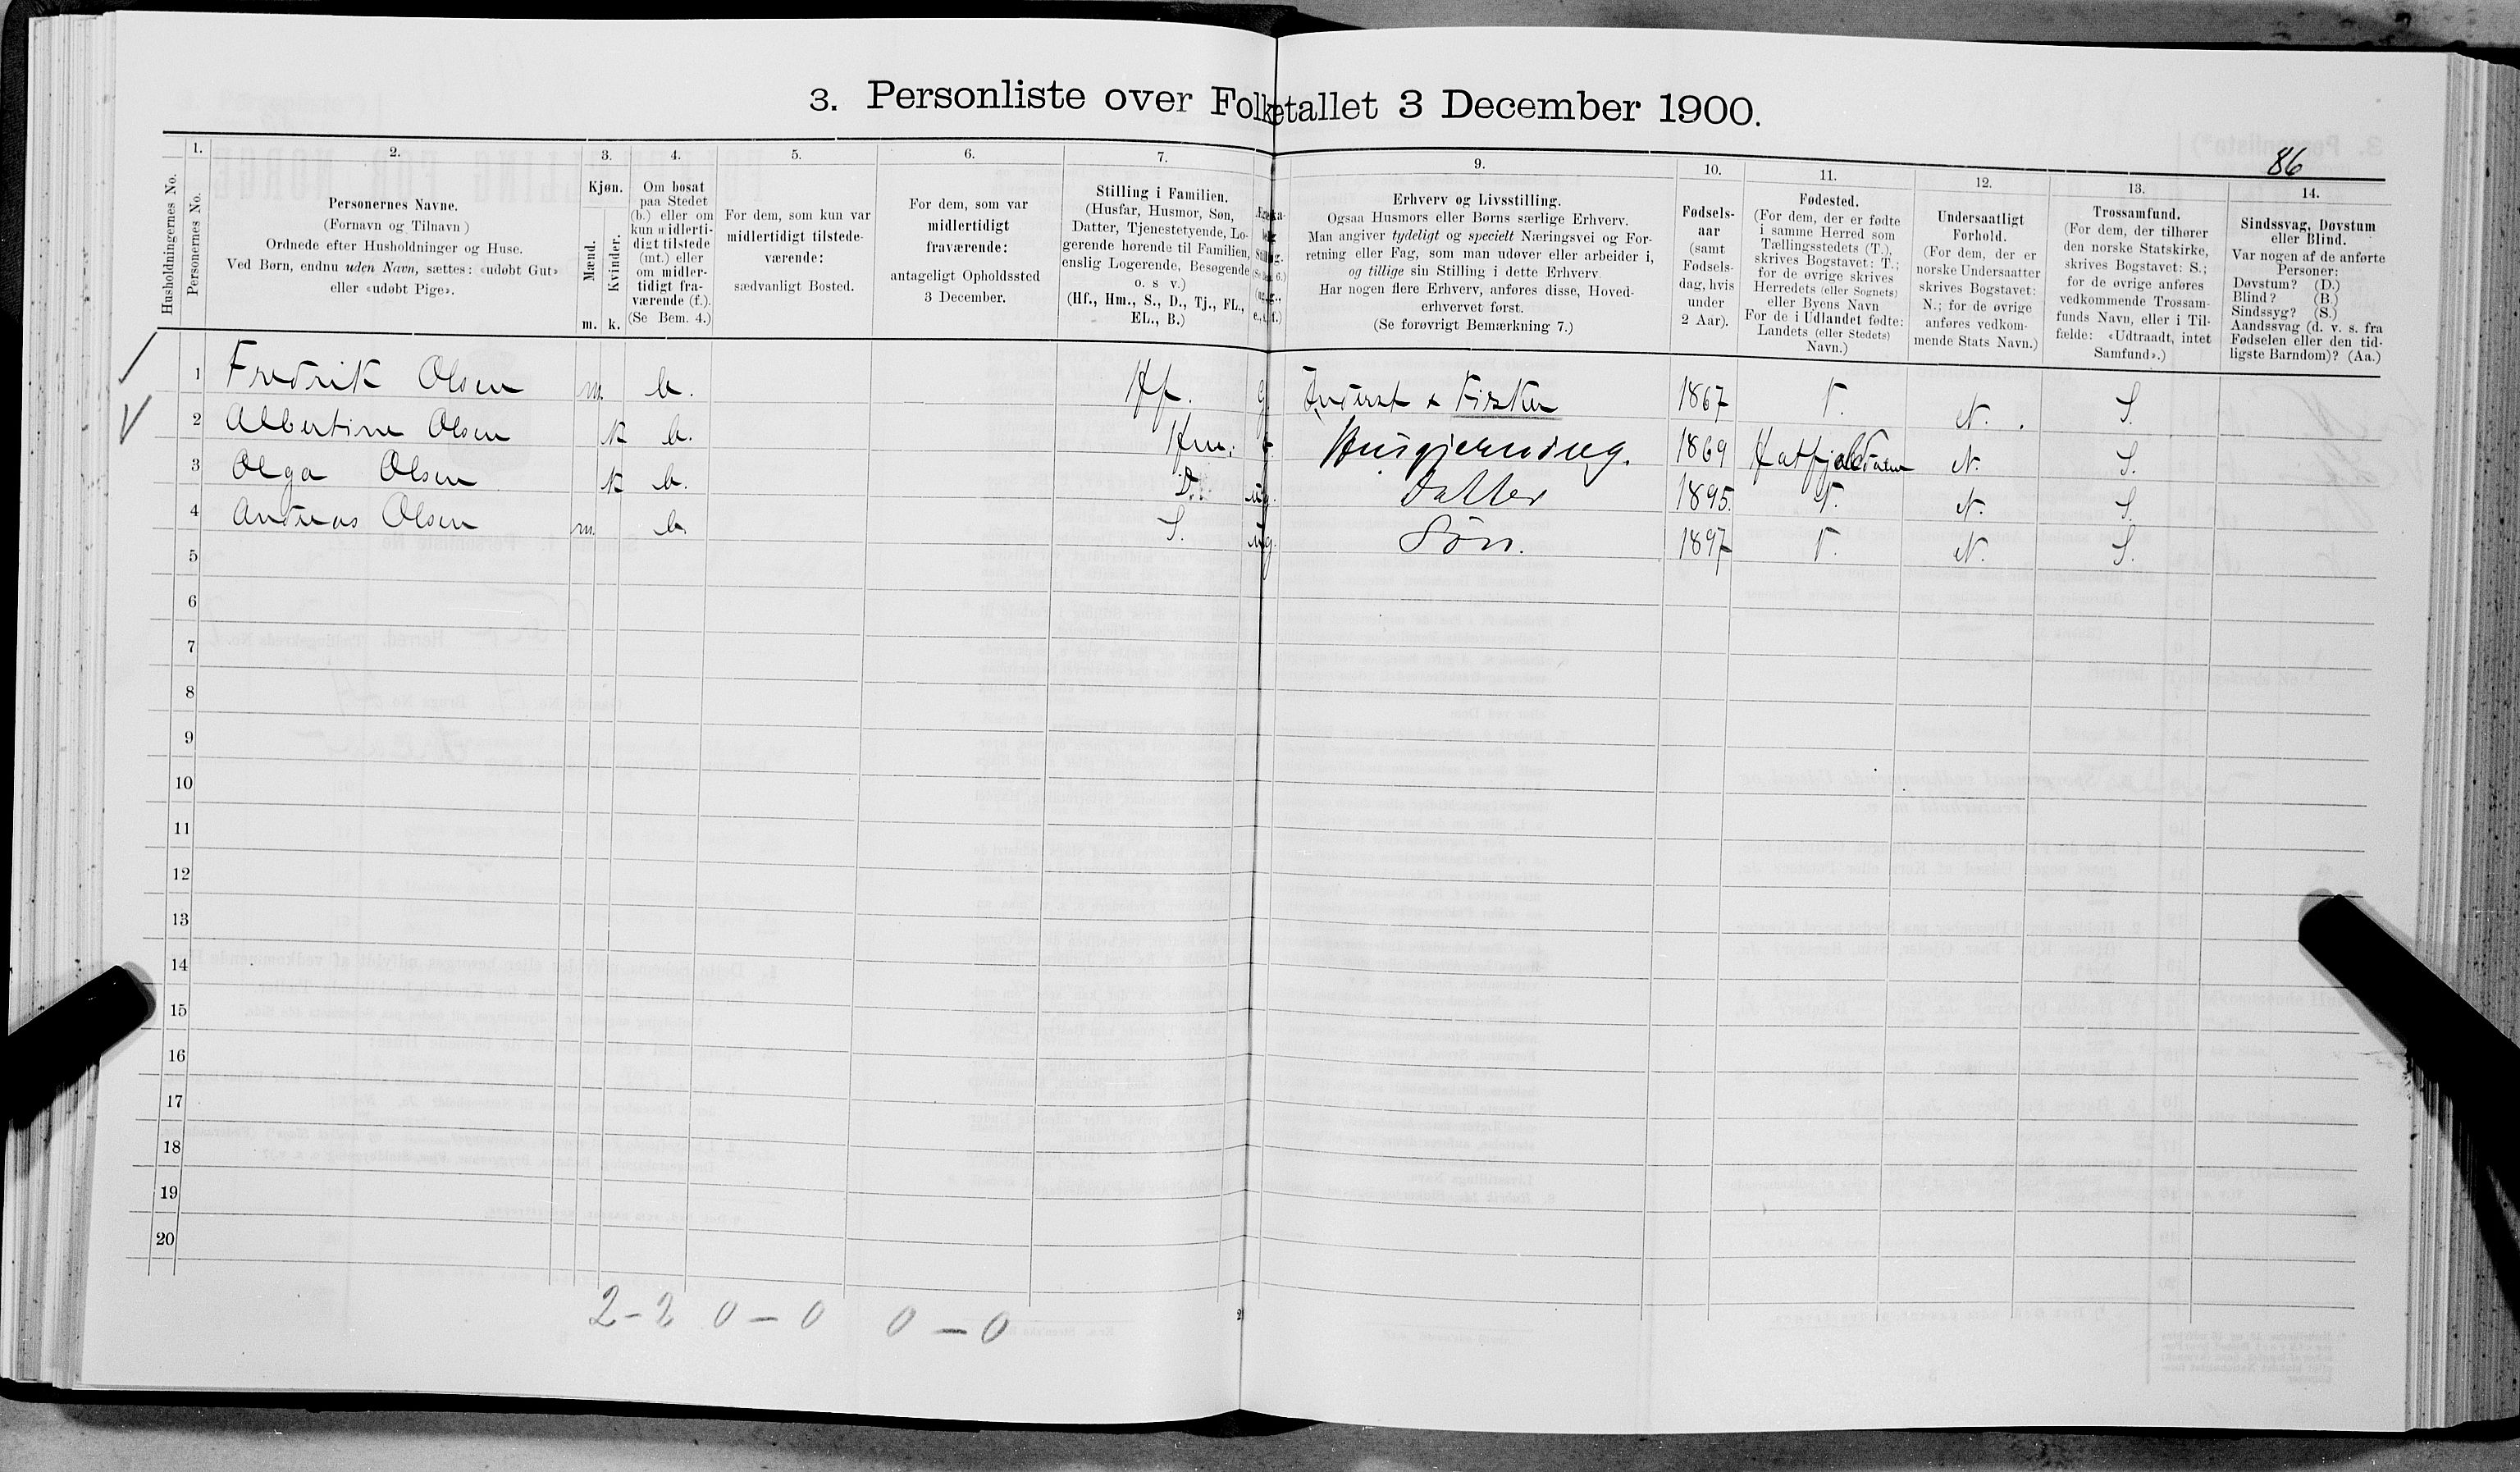 3. Personliste over Folketallet 3 December 1900.
86
Husholdningernes No.
1.
Personernes No.
2.
Personernes Navne.
(Fornavn og Tilnavn)
Ordnede efter Husholdninger og Huse.
Ved Børn, endnu uden Navn, sættes: «udøbt Gut»
eller «udøbt Pige».
3.
Kjøn.
Mænd.
Kvinder.
m. k.
4.
Om bosat
paa Stedet
(b.) eller om
kun midlerti-
digt tilstede
(mt.) eller
om midler-
tidigt fra-
værende (f.).
(Se Bem. 4.)
5.
For dem, som kun var
midlertidigt tilstede-
værende:
sædvanligt Bosted.
6.
For dem, som var
midlertidigt
fraværende:
antageligt Opholdssted
3 December.
7.
Stilling i Familien.
(Husfar, Husmor, Søn,
Datter, Tjenestetyende, Lo-
gerende hørende til Familien,
enslig Logerende, Besøgende
o. s v.)
(Hf., Hm., S., D., Tj., FL.,
EL., B.)
9.
Erhverv og Livsstilling.
Ogsaa Husmors eller Børns særlige Erhverv.
Man angiver tydeligt og specielt Næringsvei og For-
retning eller Fag, som man udøver eller arbeider i,
og tillige sin Stilling i dette Erhverv.
Har nogen flere Erhverv, anføres disse, Hoved-
erhvervet først.
(Se forøvrigt Bemærkning 7.)
10.
Fødsels-
aar
(samt
Fødsels-
dag, hvis
under
2 Aar).
11.
Fødested.
(For dem, der er fødte
i samme Herred som
Tællingsstedets (T.),
skrives Bogstavet: T.;
for de øvrige skrives
Herredets (eller Sognets)
eller Byens Navn
For de i Udlandet fødte:
Landets (eller Stedets)
Navn.)
12.
Undersaatligt
Forhold.
(For dem, der er
norske Undersaatter
skrives Bogstavet:
N.; for de øvrige
anføres vedkom-
mende Stats Navn.)
13.
Trossamfund.
(For dem, der tilhører
den norske Statskirke,
skrives Bogstavet: S.;
for de øvrige anføres
vedkommende Trossam-
funds Navn, eller i Til-
fælde: «Udtraadt, intet
Samfund».)
14.
Sindssvag, Døvstum
eller Blind.
Var nogen af de anførte
Personer:
Døvstum? (D.)
Blind? (B.)
Sindssyg? (S.)
Aandssvag (d. v. s. fra
Fødselen eller den tid-
ligste Barndom)? (Aa.)
1 Fredrik Olsen m. b. Hf. g. Inderst & Fisker 1867 T. N. S.
2 Albertine Olsen k b. Hm. Husgjerning. 1869 Hatfjeldalen N. S.
3 Olga Olsen k b. D. ug. Datter 1895. T. N. S.
4 Andreas Olsen m. b. S. ug. Søn. 1897 T. N. S.
5
6
7
8
9
10
11
12
13
14
15
16
17
18
19
20
2-2 0-0 0-0